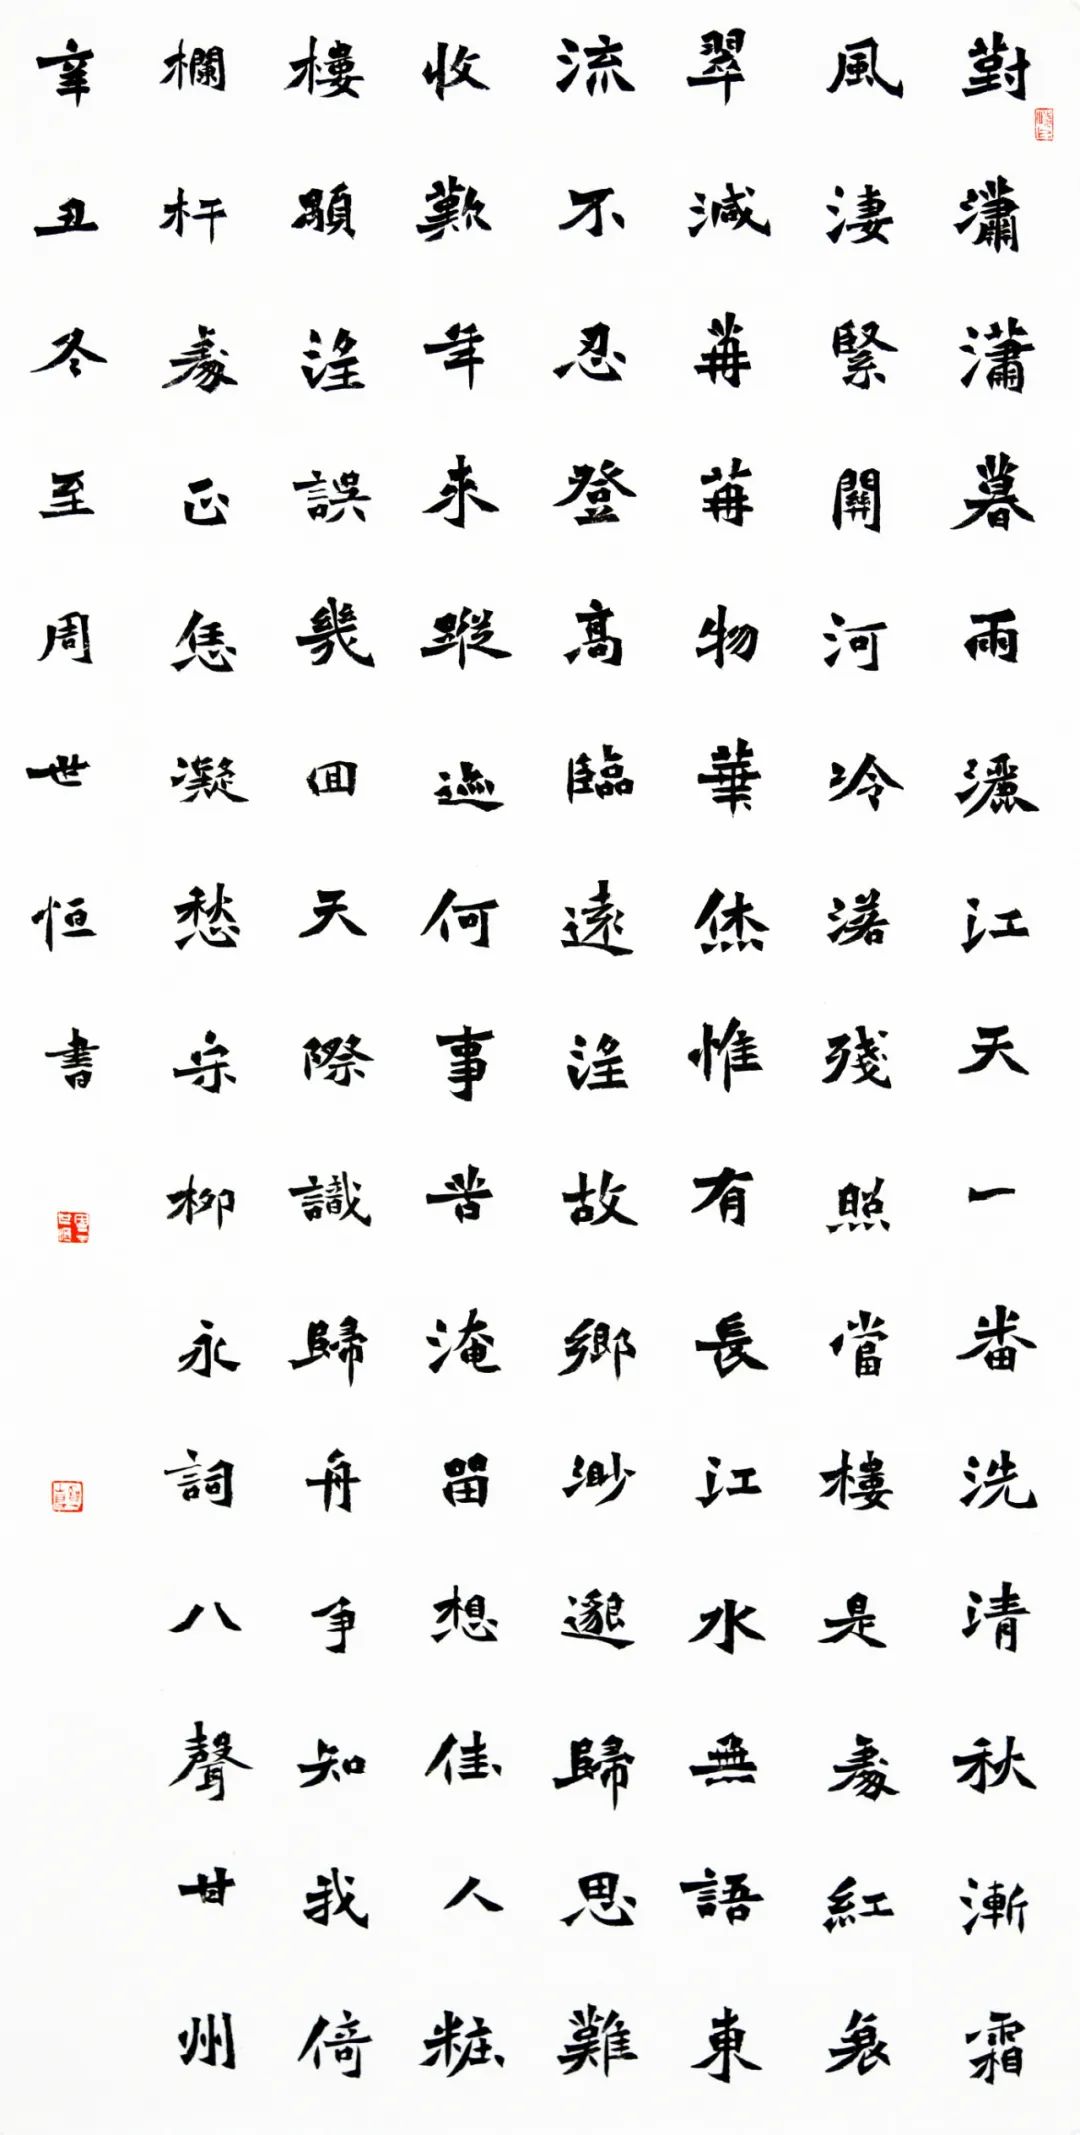 對瀟瀟暮雨灑江天一番洗清秋漸霜
風淒緊關河冷落殘照當樓是處紅衰
翠減苒苒物華烋惟有長江水無語東
流不忍登高臨遠望故鄉渺邈歸思難
收歎年來蹤迹何事苦淹留想佳人粧
樓顒望誤幾囬天際識歸舟爭知我倚
欄杆處正恁凝愁宋柳永詞八聲甘州
辛丑冬至周世恒書